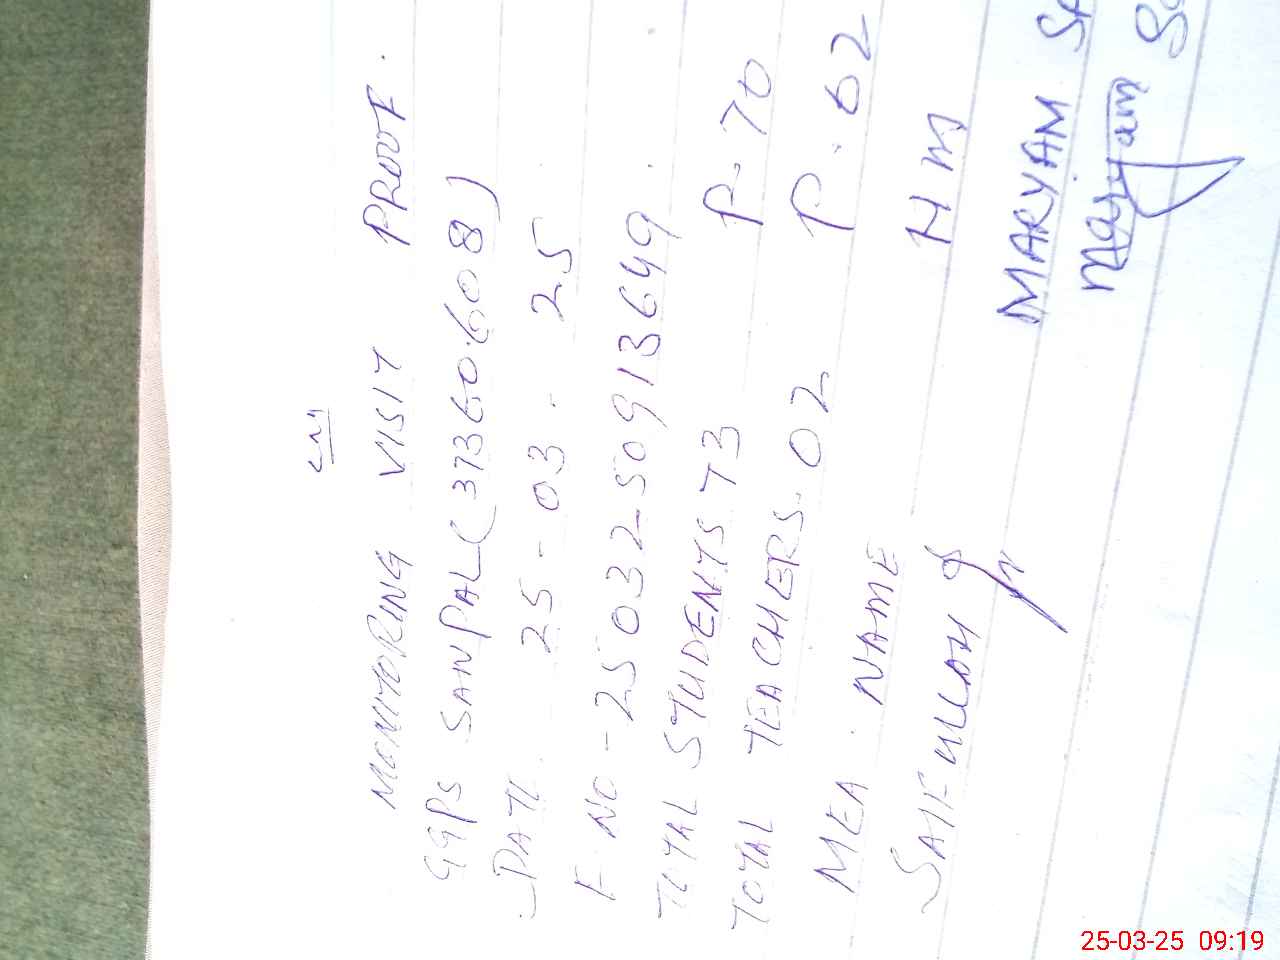 MONITORING VISIT PROOF.
GGPS SANPAL (37360608)
DATE. 25-03-25
F. NO-25032509113649
TOTAL STUDENTS 73 P-70
TOTAL TEACHERS. 02 P. 02
MEA. NAME HM
SAIFULLAH MARYAM
Maryam
25-03-25 09:19